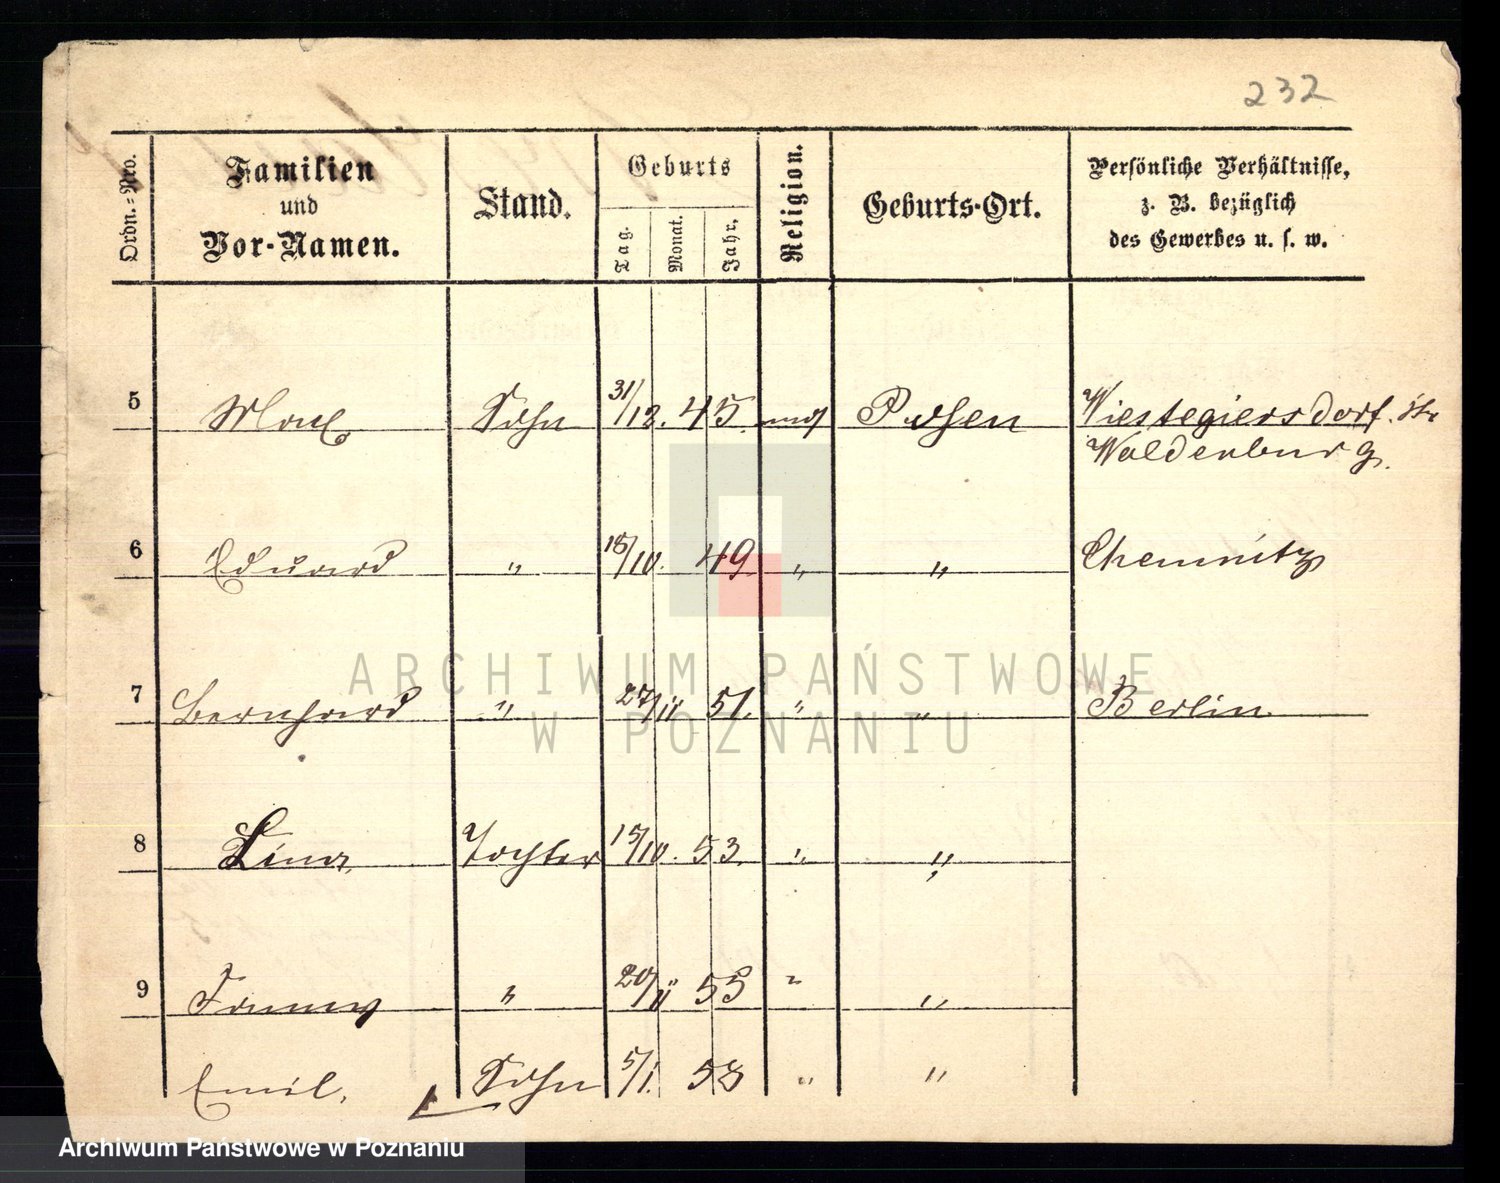 232
Ordn.-Nro.
Familien
und
Vor-Namen.
Stand.
Geburts
Tag.
Monat.
Jahr.
Religion.
Geburts-Ort.
Persönliche Verhältnisse,
z. B. bezüglich
des Gewerbes u. s. w.
5 Max Sohn 31/12. 45. mos Posen Wüstegiersdorf.
Waldenburg.
6 Eduard " /10. 49. " " Chemnitz
7 Bernhard " 27/11 51. " " Berlin
8 Lina Tochter 15/10. 53. " "
9 Fanny " 20/11 55 " "
Emil. Sohn 5/1. 58 " "
ARCHIWUM PAŃSTWOWE
W POZNANIU
Archiwum Państwowe w Poznaniu